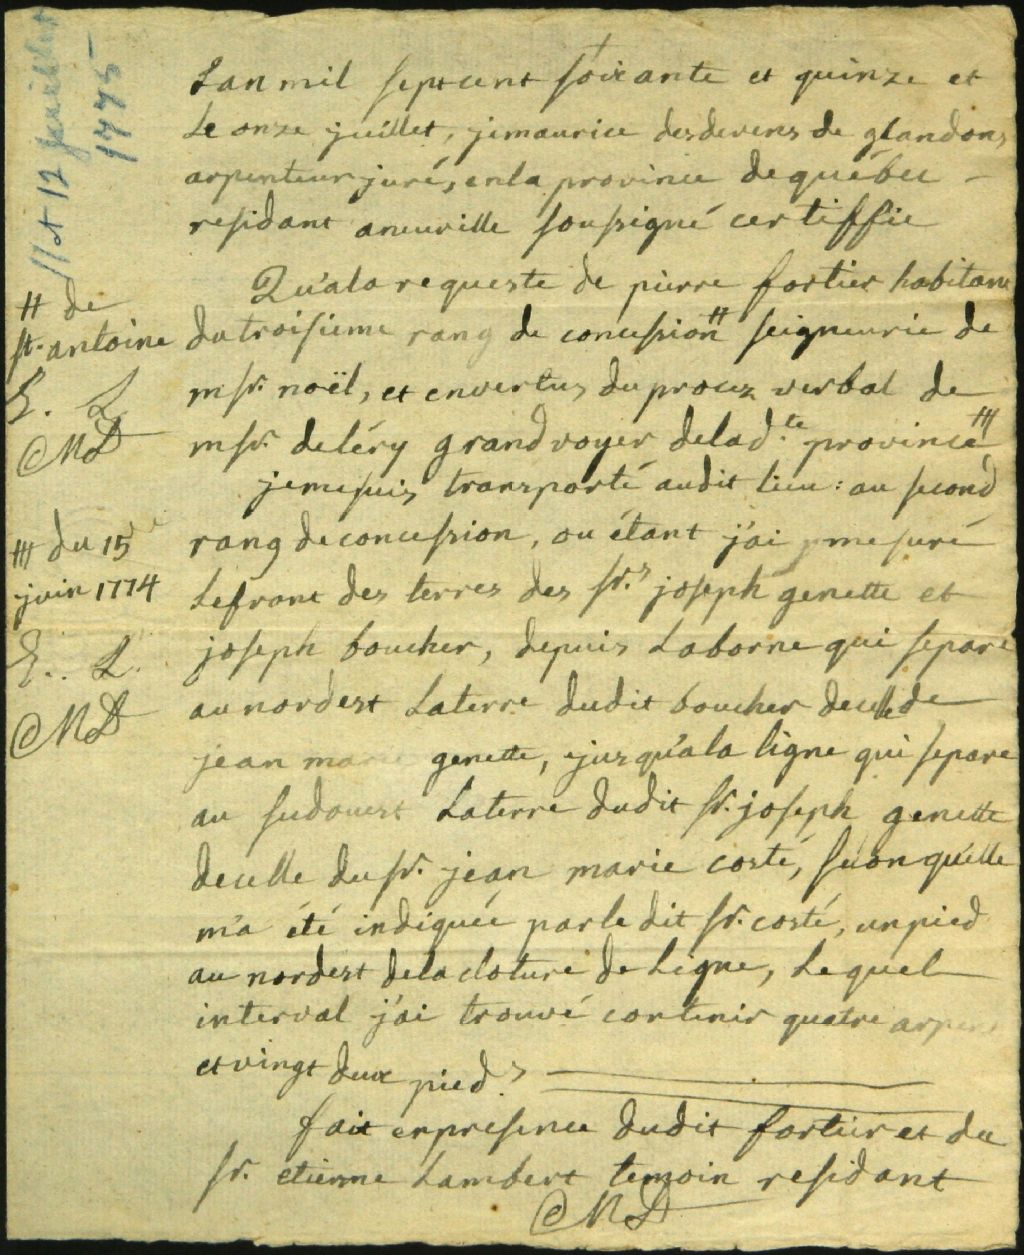 11 et 12 juillet
1775
Lan mil sept cent soixante et quinze et
Le onze juillet, je maurice desdevens de glandons
arpenteur juré, en la province de québec -
residant aneuville soussigné certiffie
Qu'ala requeste de pierre fortier habitant
# de
st. antoine
E. L.
MD
du troisieme rang de concession # seigneurie de
msr. noël, et envertus du procez verbal de
msr. deléry grand voyer delad.te province #
je me suis transporté audit lieu : au second
# du 15e
juin 1774
E.. L.
MD
rang de concession, ou étant j'ai mesuré
Lefront des terres des srs. joseph genette et
joseph boucher, depuis Laborne qui separe
au nordest Laterre dudit boucher decelle de
jean marie genette, jusqu'ala ligne qui separe
au sudouest Laterre dudit sr. joseph genette
decelle du sr. jean marie costé, selon qu'elle
m'a été indiquée par le dit sr. costé, un pied
au nordest de la cloture de Ligne, Lequel
interval j'ai trouvé contenir quatre arpens
et vingt deux pieds
fait en presence dudit fortier et du
sr. etienne Lambert temoin residant
MD